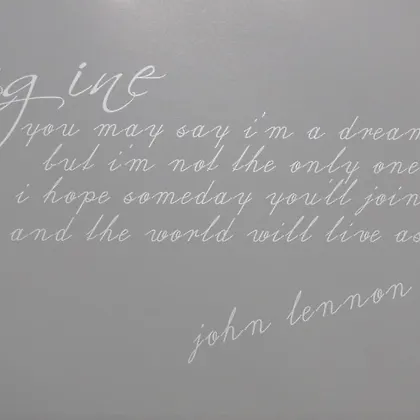 g ine
you may say i'm a dream
but i'm not the only one
i hope someday you'll join
and the world will live as
john lennon